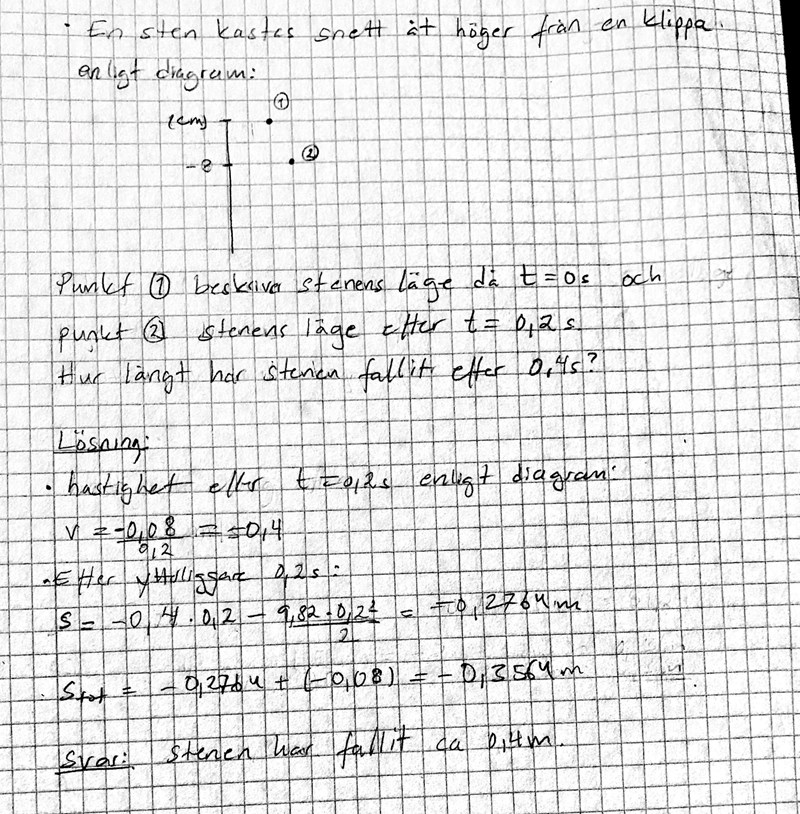 · En sten kastas snett åt höger från en klippa.
enligt diagram:
①
(cm)
-8
②
Punkt ① beskriver stenens läge då t = 0s och
punkt ② stenens läge efter t = 0,2 s.
Hur långt har stenen fallit efter 0,4s?
Lösning:
· hastighet efter t = 0,2s enligt diagram:
v = -0,08/0,2 = -0,4
· Efter ytterliggare 0,2s:
s = -0,4 · 0,2 - 9,82 · 0,2²/2 = -0,2764m
· Stot = -0,2764 + (-0,08) = -0,3564m
Svar: Stenen har fallit ca 0,4m.